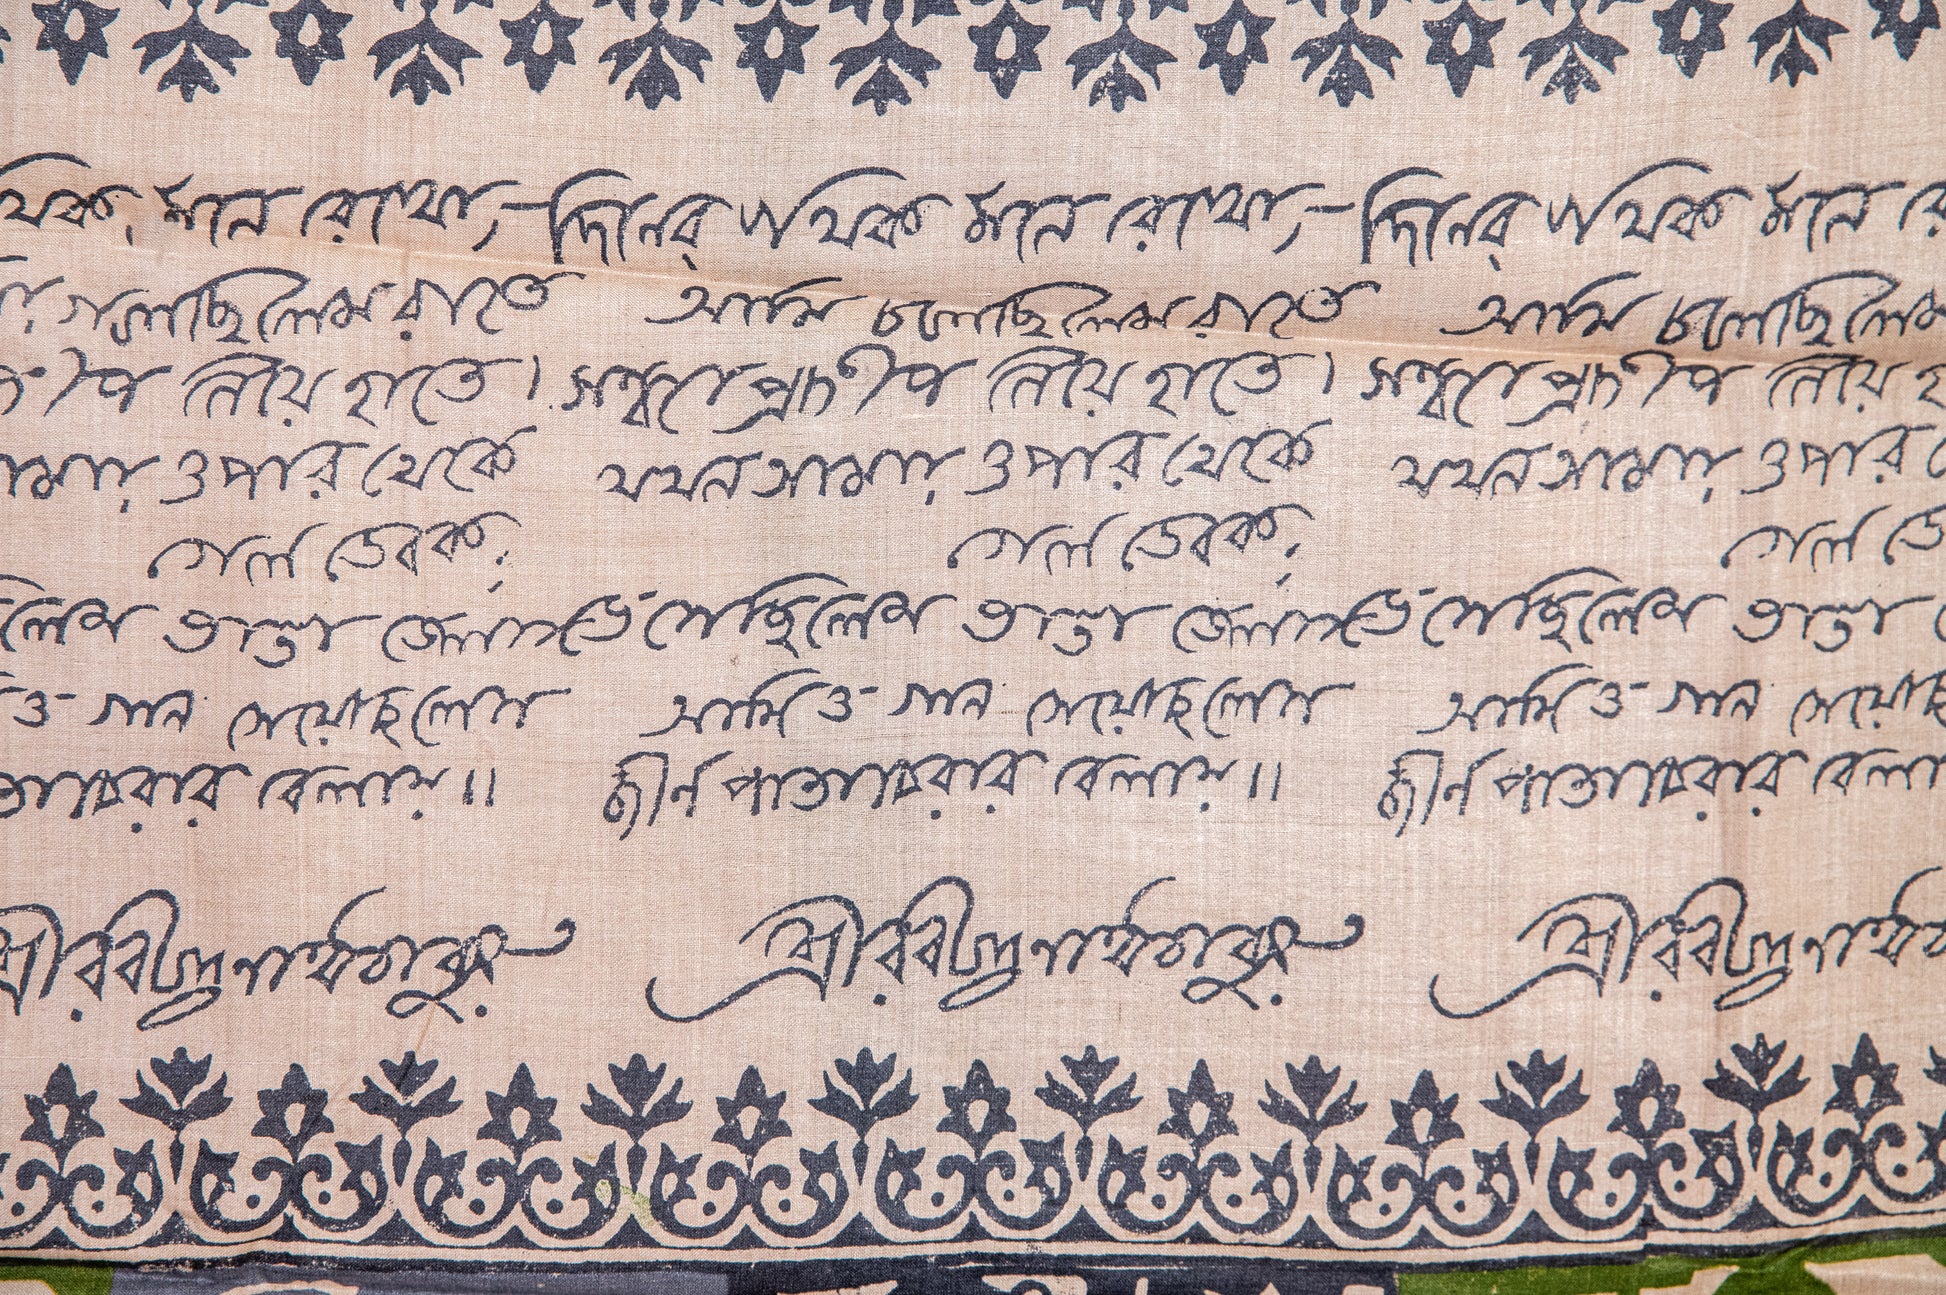 মনে রেখো,— দিনের পথিক মনে রেখো,— দিনের পথিক মনে
চলেছিলেম রাতে আমি চলেছিলেম রাতে আমি চলেছিলেম
নিয়ে হাতে। সন্ধ্যাপ্রদীপ নিয়ে হাতে। সন্ধ্যাপ্রদীপ নিয়ে
ওপার থেকে যখন আমায় ওপার থেকে যখন আমায় ওপার
গেল ডেকে, গেল ডেকে, গেল
ভাঙা ভেলায় ভেসেছিলেম ভাঙা ভেলায় ভেসেছিলেম ভাঙা
গান গেয়েছিলেম আমিও গান গেয়েছিলেম আমিও গান
ঝরার বেলায়॥ জীর্ণ পাতা ঝরার বেলায়॥ জীর্ণ পাতা ঝরার
শ্রীরবীন্দ্রনাথ ঠাকুর শ্রীরবীন্দ্রনাথ ঠাকুর শ্রীরবীন্দ্রনাথ